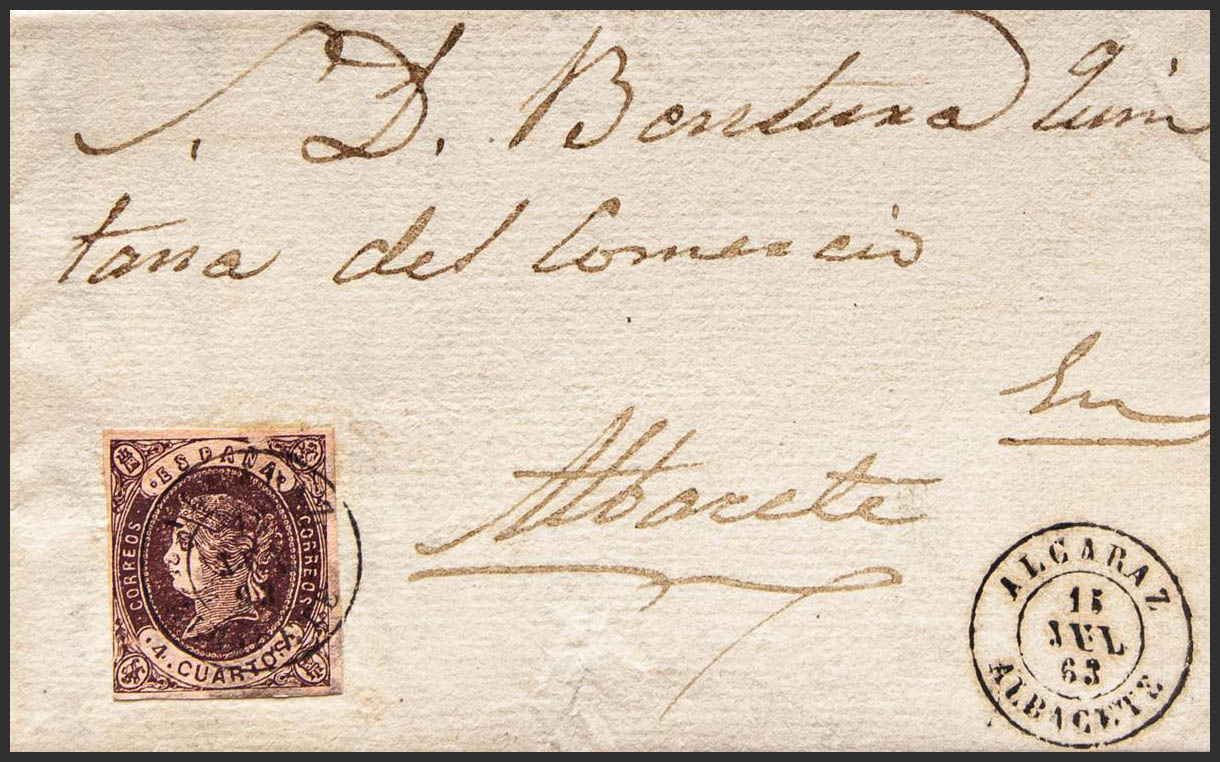 S. D. Bentura Quin
tana del Comercio
En
Albacete
ESPAÑA
CORREOS
CORREOS
4. CUARTOS
ALCARAZ
15
JUL
63
ALBACETE